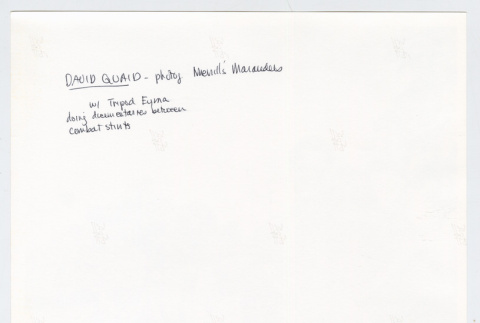 DAVID QUAID - photog Merrill's Marauders
w/ Tripod Eyma
doing documentaries between
combat stints